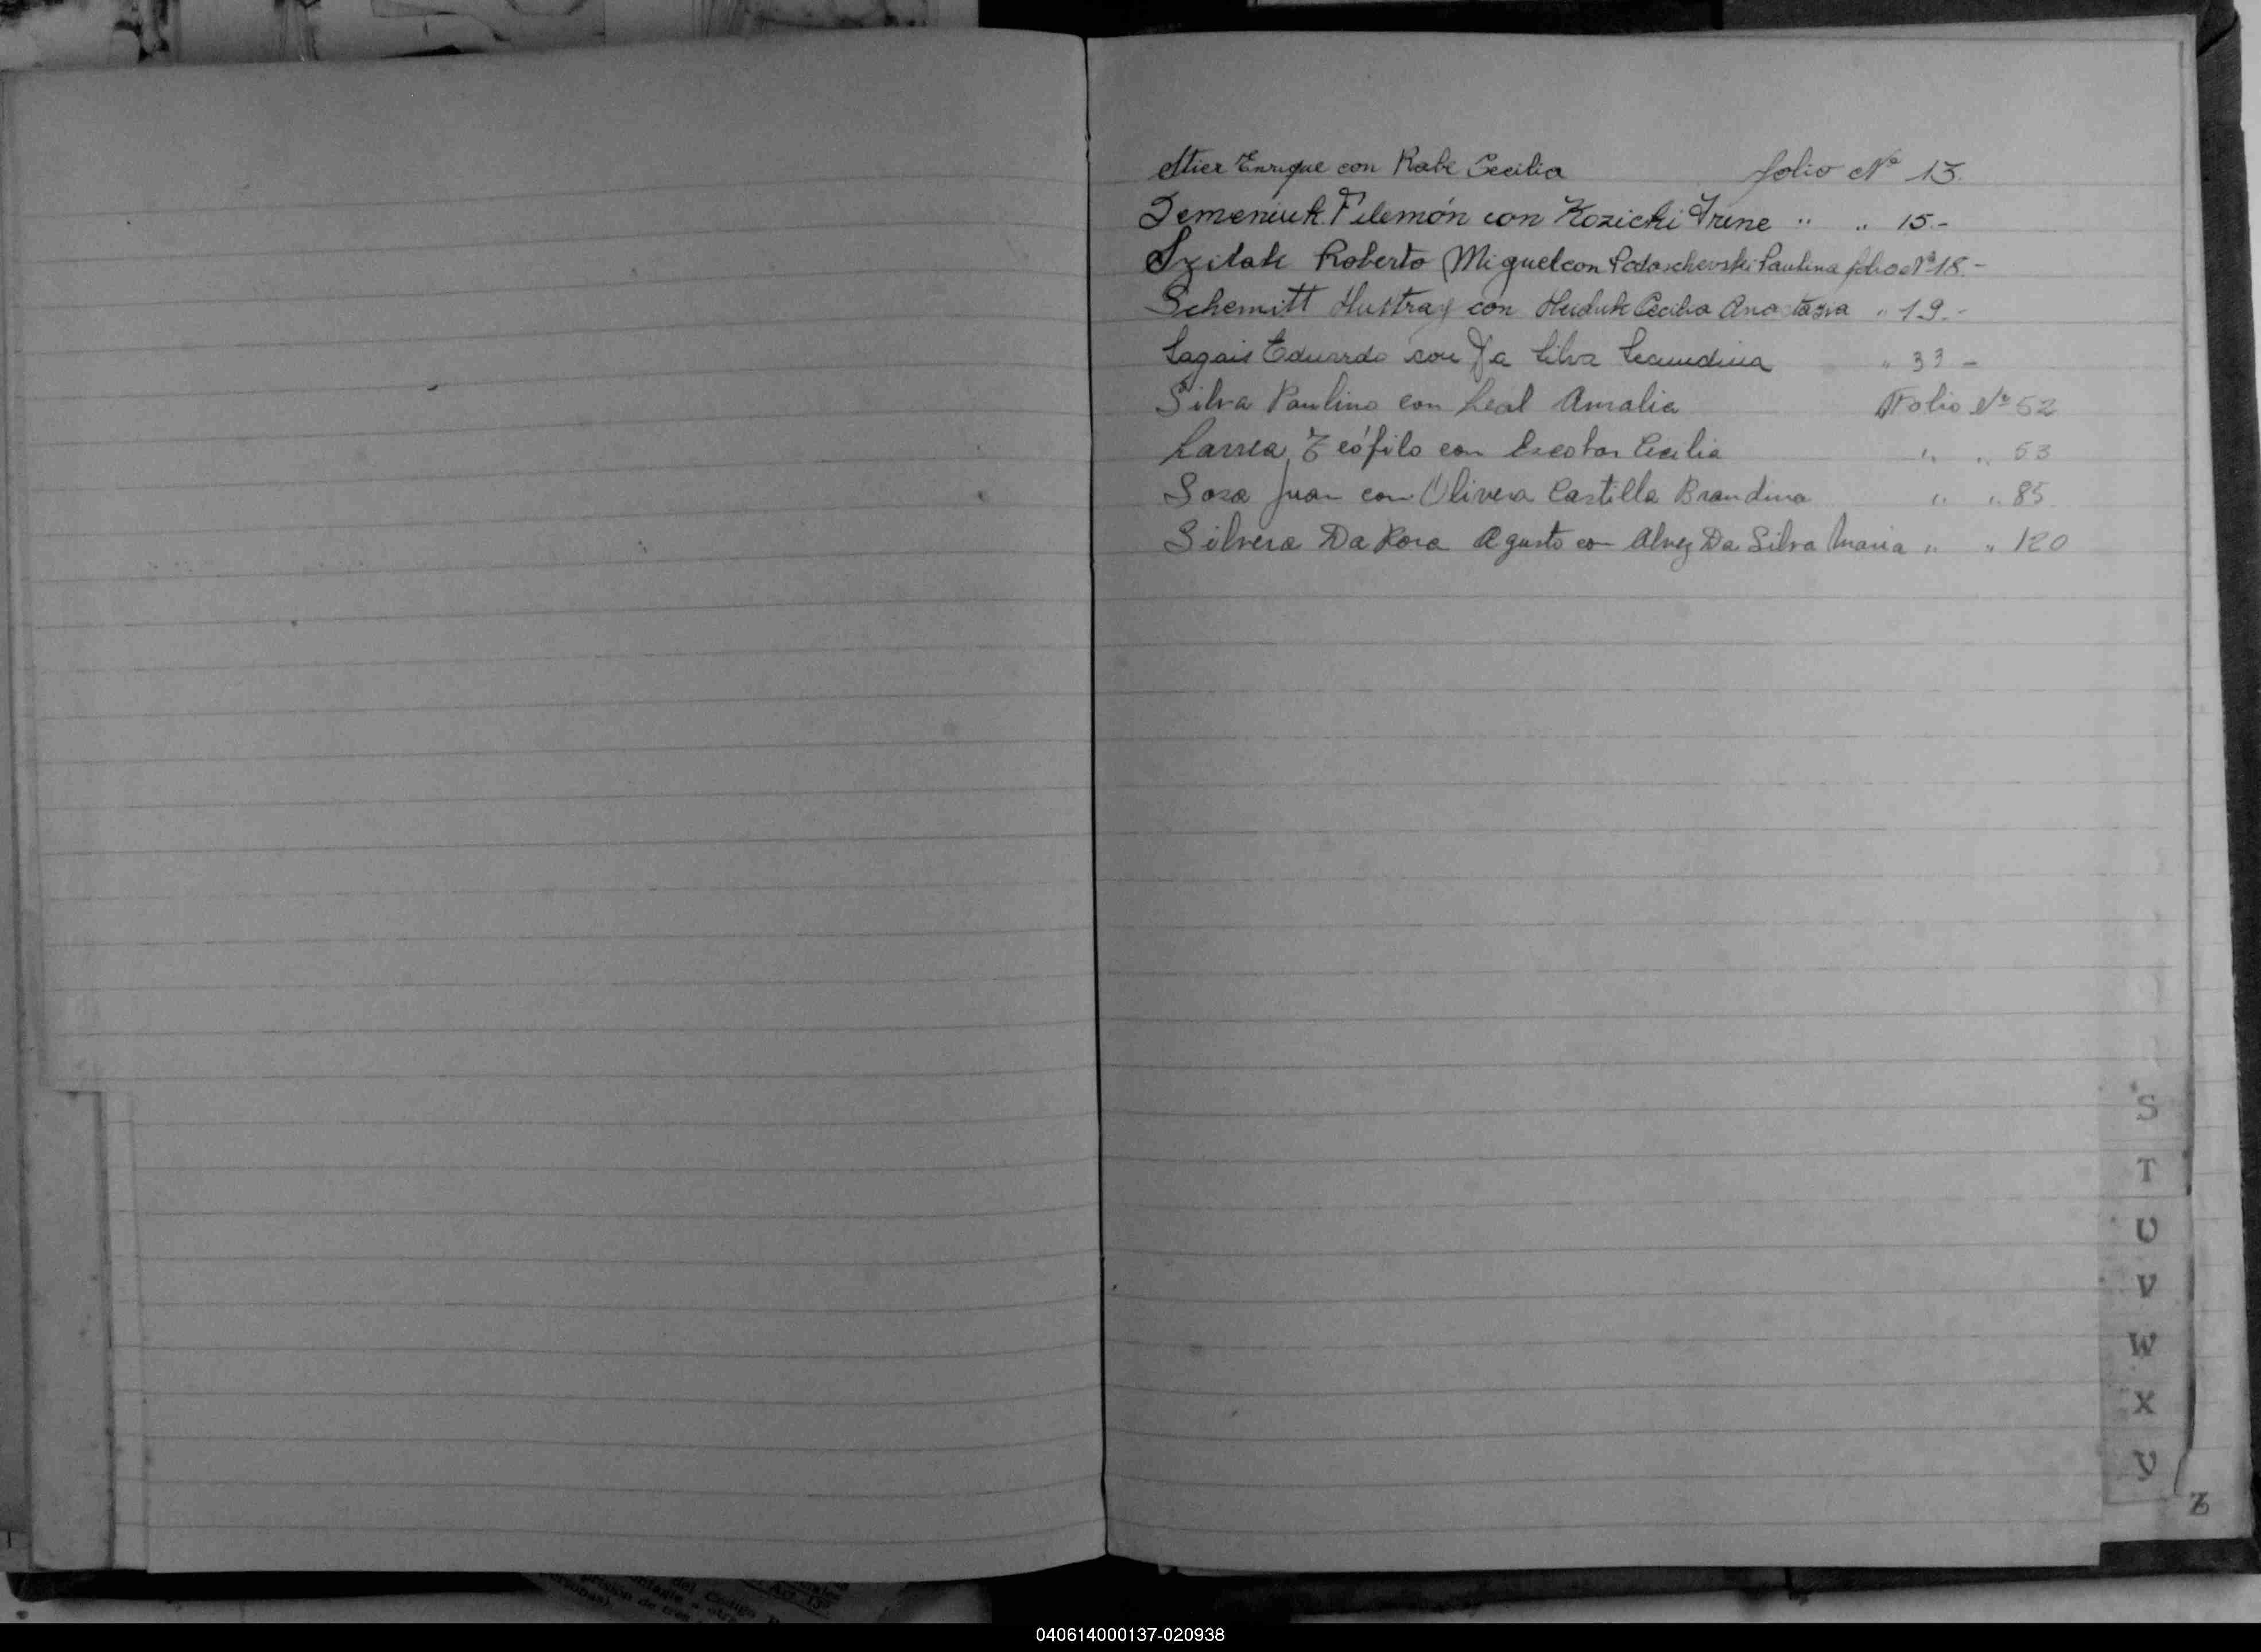 Stier Enrique con Rabe Cecilia folio Nº 13.
Semeniuk Filemón con Kozicki Irene " " 15.-
Szilak Roberto Miguel con Podaschevski Paulina folio Nº 18.-
Schemitt con Cecilia Anastasia " 19.-
Sagais Eduardo con Da Silva Secundina " 33 -
Silva Paulino con Leal Amalia Folio Nº 52
Larrea Teófilo con Escobar Cecilia " " 53
Sosa Juan con Olivera Castilla Brandina " " 85
Silvera Da Rosa Agusto con Alvez Da Silva Maria " " 120
S
T
U
V
W
X
Y
Z
040614000137-020938